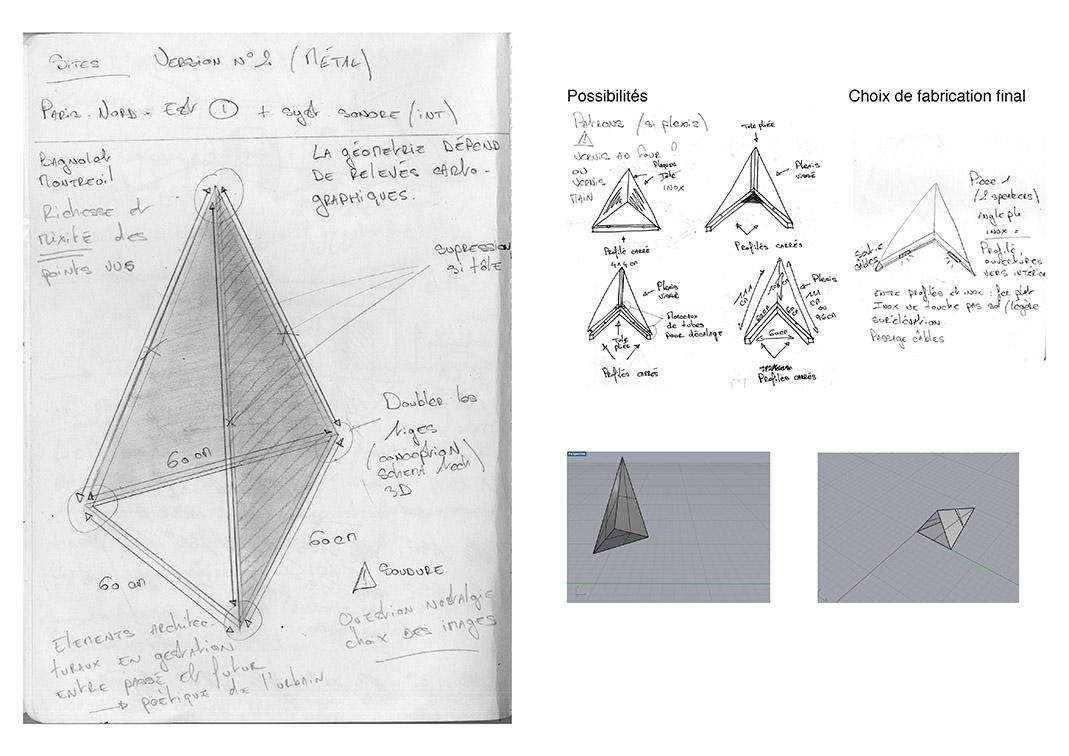 SITES VERSION N°2 (MÉTAL)
PARIS. NORD. EST ① + SYST SONORE (INT)
Bagnolet
MONTREUIL
Richesse et
Mixité des
points VUS
LA GÉOMETRIE DÉPEND
DE RELEVÉS CARTO-
GRAPHIQUES.
SUPRESSION
si tôle
Doubler les
tiges
(conception
schema tech)
3D
60 cm
60 cm
60 cm
SOUDURE
Question Nostalgie
choix DES IMAGES
Elements ARCHITEC-
TURAUX EN gestation
ENTRE PASSÉ et futur
→ poétique de l'urbain
Possibilités
PATRONS (si plexis)
VERNIS AU FOUR ?
OU
VERNIS
MAIN
Plaques
Tole
INOX
Profilé CARRÉ
Tole pliée
Plexis
vissé
Profilés CARRÉS
4x4 cm
Plexis
vissé
Morceaux
de tubes
POUR DÉCALAGE
Tole
pliée
Profilés CARRÉ
Plexis
111
cm
108 cm
111
cm
ou
96 cm
60 cm
60 cm
60 cm
Profilés CARRÉS
Choix de fabrication final
Pièce 1
(2 speakers)
Angle pli
inox =
Profilé
ouvertures
VERS intérieur
sortie
câbles
ENTRE profilés et inox : fer plat
Inox NE touche PAS sol (légère
surélévation.
PASSAGE CÂBLES
Perspective